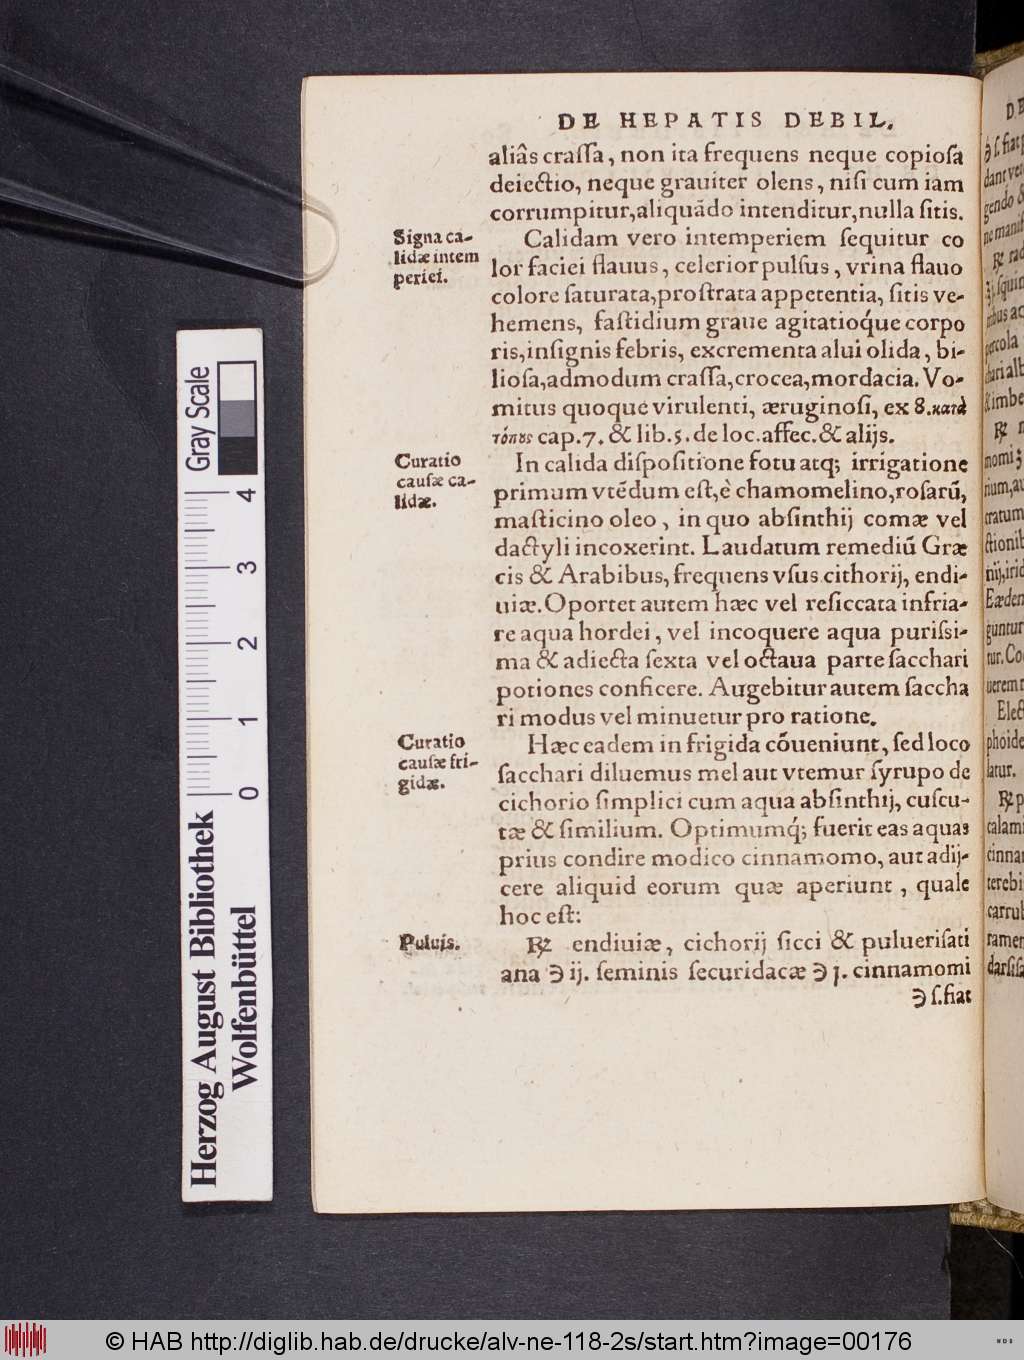 DE HEPATIS DEBIL.
aliâs crassa, non ita frequens neque copiosa
deiectio, neque grauiter olens, nisi cum iam
corrumpitur, aliquādo intenditur, nulla sitis.
Signa ca-
lidæ intem
periei.
Calidam vero intemperiem sequitur co
lor faciei flauus, celerior pulsus, vrina flauo
colore saturata, prostrata appetentia, sitis ve-
hemens, fastidium graue agitatioq́ue corpo
ris, insignis febris, excrementa alui olida, bi-
liosa, admodum crassa, crocea, mordacia. Vo-
mitus quoque virulenti, æruginosi, ex 8. κατὰ
τόπους cap. 7. & lib. 5. de loc. affec. & alijs.
Curatio
causæ ca-
lidæ.
In calida dispositione fotu atq; irrigatione
primum vtēdum est, è chamomelino, rosarū,
masticino oleo, in quo absinthij comæ vel
dactyli incoxerint. Laudatum remediū Græ
cis & Arabibus, frequens vsus cithorij, endi-
uiæ. Oportet autem hæc vel resiccata infria-
re aqua hordei, vel incoquere aqua purissi-
ma & adiecta sexta vel octaua parte sacchari
potiones conficere. Augebitur autem saccha
ri modus vel minuetur pro ratione.
Curatio
causæ fri-
gidæ.
Hæc eadem in frigida cōueniunt, sed loco
sacchari diluemus mel aut vtemur syrupo de
cichorio simplici cum aqua absinthij, cuscu-
tæ & similium. Optimumq́; fuerit eas aquas
prius condire modico cinnamomo, aut adij-
cere aliquid eorum quæ aperiunt, quale
hoc est:
Puluis.
℞ endiuiæ, cichorij sicci & puluerisati
ana ℈ ij. seminis securidacæ ℈ j. cinnamomi
℈ s. fiat
Gray Scale
0 1 2 3 4
Herzog August Bibliothek
Wolfenbüttel
© HAB http://diglib.hab.de/drucke/alv-ne-118-2s/start.htm?image=00176